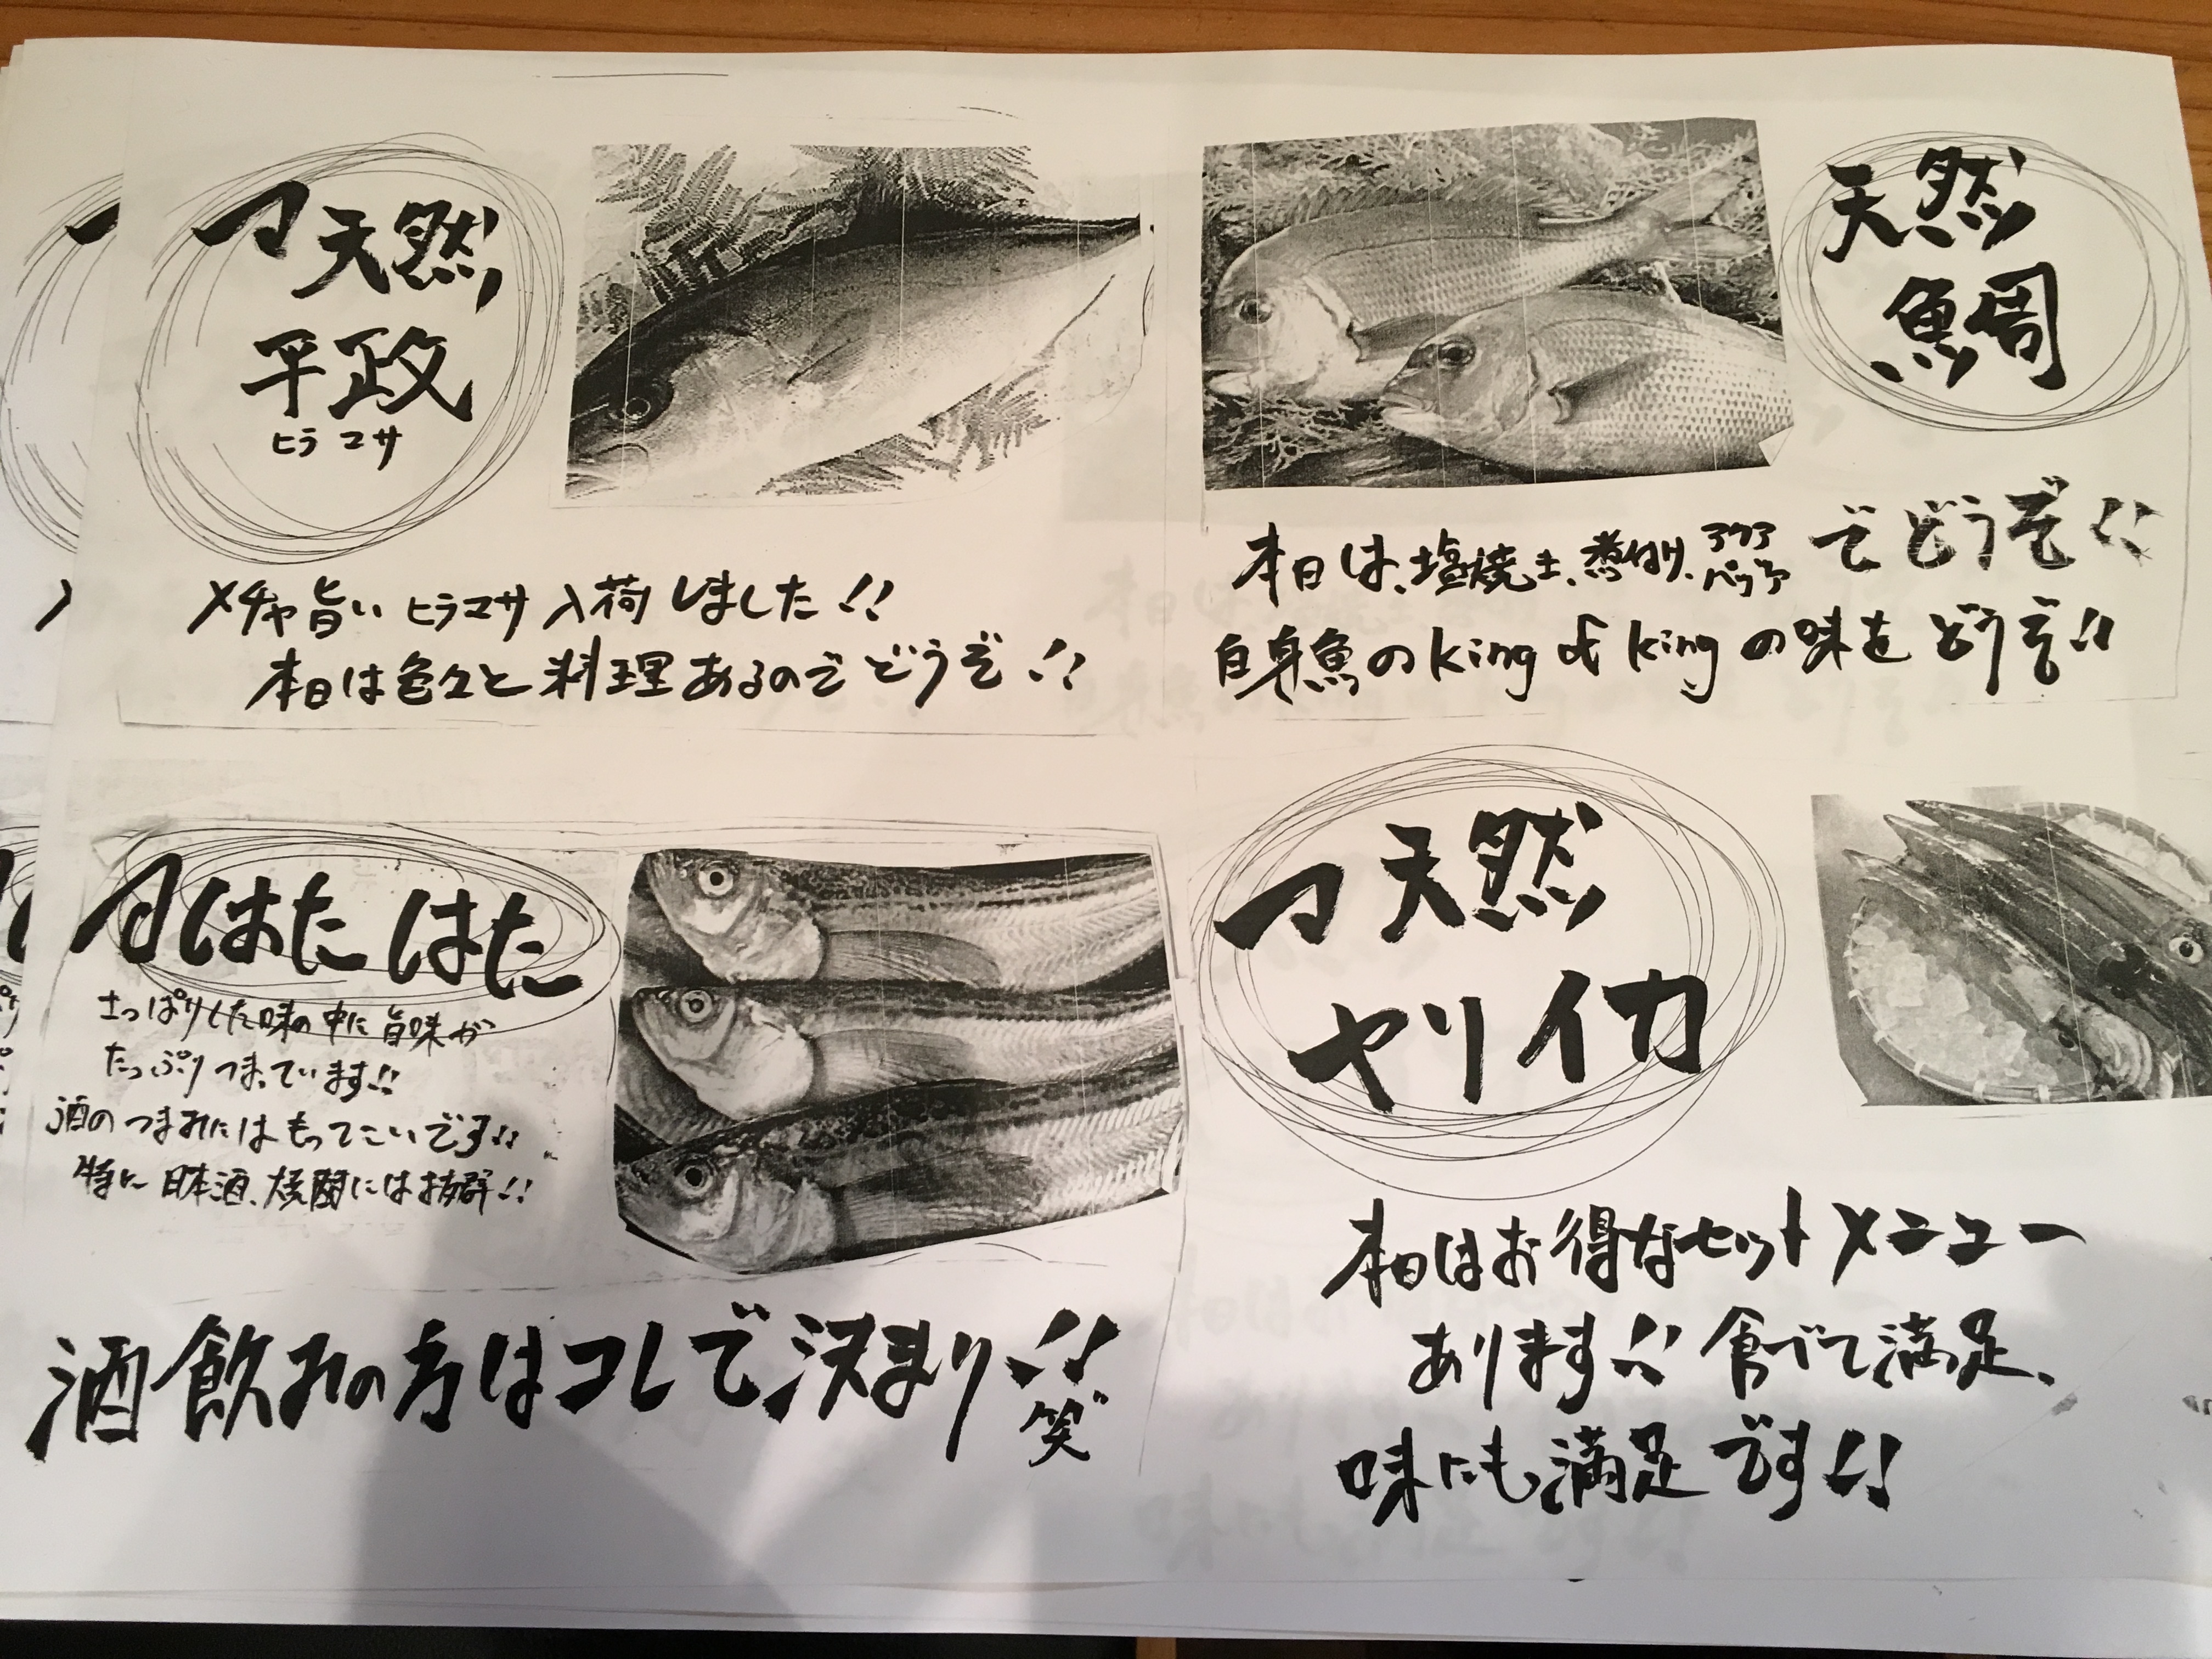 天然
平政
ヒラマサ
メチャ旨い ヒラマサ 入荷しました!!
本日は色々と料理あるのでどうぞ!!
天然
鯛
本日は、塩焼き、煮付け、アクアパッツァでどうぞ!!
白身魚のking of kingの味をどうぞ!!
はたはた
さっぱりした味の中に旨味が
たっぷりつまっています!!
酒のつまみにはもってこいです!!
特に日本酒、焼酎には抜群!!
酒飲みの方はコレで決まり!!
笑
天然
ヤリイカ
本日はお得なセットメニュー
あります!! 食べて満足、
味にも満足です!!